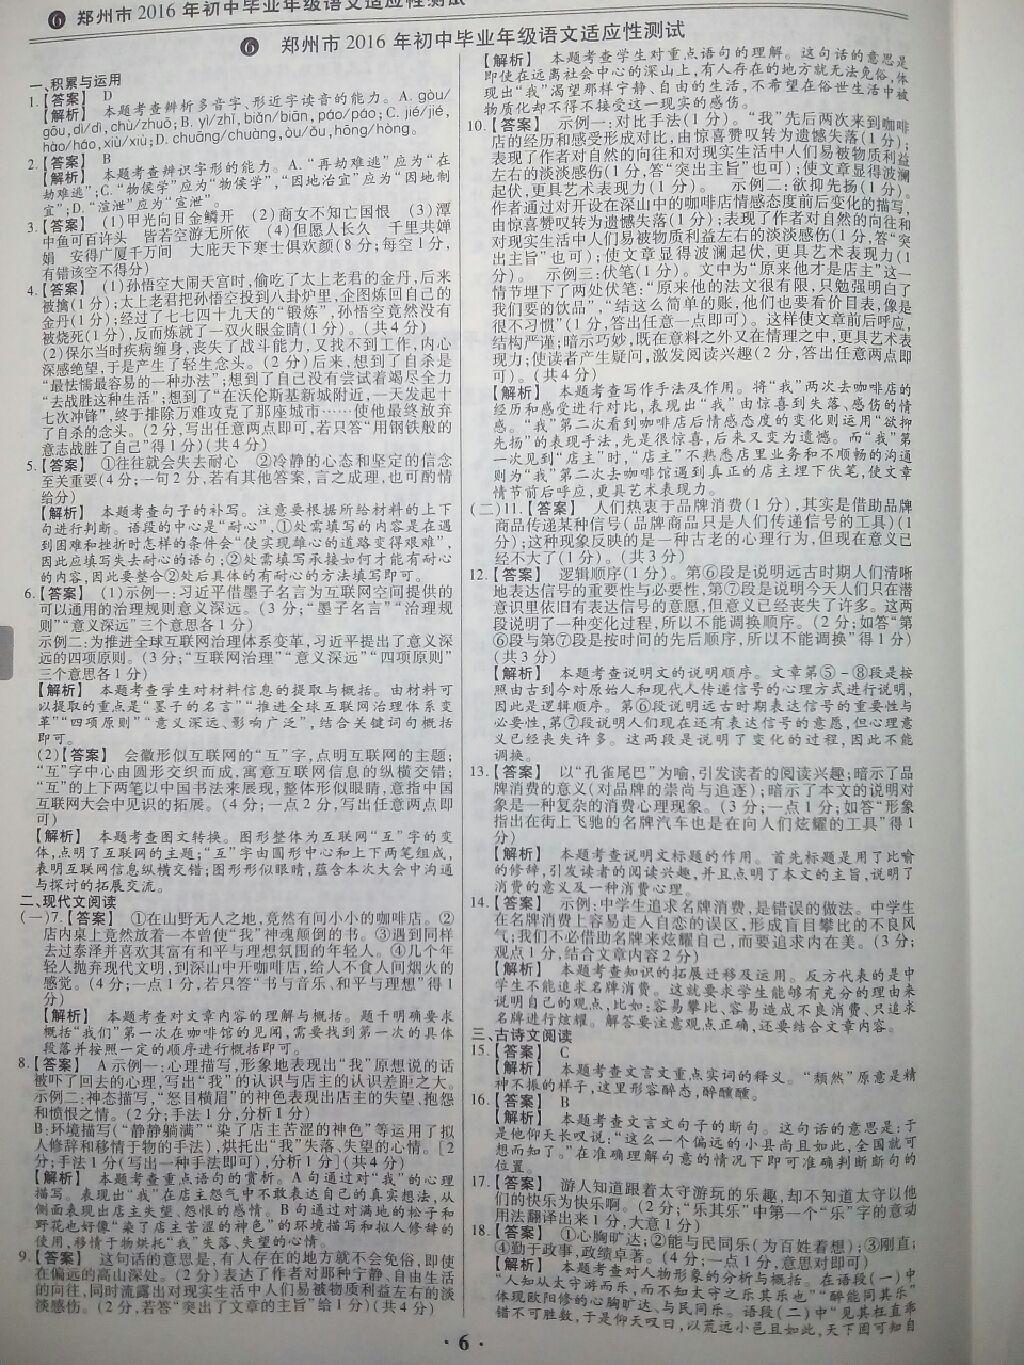 ❻ 郑州市2016年初中毕业年级语文适应性测试
❻ 郑州市2016年初中毕业年级语文适应性测试
一、积累与运用
1.【答案】 D
【解析】 本题考查辨析多音字、形近字读音的能力。A. gòu/
gōu,dì/dí,chù/zhuō;B. yì/zhǐ,biān/biān,páo/páo;C. jié/jié,
hào/háo,xiù/xiù;D. chuāng/chuàng,òu/ǒu,hōng/hòng。
2.【答案】 B
【解析】 本题考查辨识字形的能力。A.“再劫难逃”应为“在
劫难逃”;C.“物侯学”应为“物候学”,“因地治宜”应为“因地制
宜”;D.“渲泄”应为“宣泄”。
3.【答案】 (1)甲光向日金鳞开 (2)商女不知亡国恨 (3)潭
中鱼可百许头 皆若空游无所依 (4)但愿人长久 千里共婵
娟 安得广厦千万间 大庇天下寒士俱欢颜(8分;每空1分,
有错该空不得分)
4.【答案】 (1)孙悟空大闹天宫时,偷吃了太上老君的金丹,后来
被擒(1分);太上老君把孙悟空投到八卦炉里,企图炼回自己的
金丹(1分);经过了七七四十九天的“锻炼”,孙悟空竟然没有
被烧死(1分),反而炼就了一双火眼金睛(1分)。(共4分)
(2)保尔当时疾病缠身,丧失了战斗能力,又找不到工作,内心
深感绝望,于是产生了轻生念头。(2分)后来,想到了自杀是
“最怯懦最容易的一种办法”;想到了自己没有尝试着竭尽全力
“去战胜这种生活”;想到了“在沃伦斯基新城附近,一天发起十
七次冲锋”,终于排除万难攻克了那座城市……使他最终放弃
了自杀的念头。(2分,写出任意两点即可,若只答“用钢铁般的
意志战胜了自己”得1分)(共4分)
5.【答案】 ①往往就会失去耐心 ②冷静的心态和坚定的信念
至关重要(4分;一句2分,若有其他答案,言之成理,也可酌情
给分)
【解析】 本题考查句子的补写。注意要根据所给材料的上下
句进行判断。语段的中心是“耐心”,①处需填写的内容是在遇
到困难和挫折时怎样的条件会“使实现雄心的道路变得艰难”,
因此应填写失去耐心的语句;②处需填写承接如何才能有耐心
的内容,因此要整合②处后具体的有耐心的方法填写即可。
6.【答案】 (1)示例一:习近平借墨子名言为互联网空间提供的
可以通用的治理规则意义深远。(3分;“墨子名言”“治理规
则”“意义深远”三个意思各1分)
示例二:为推进全球互联网治理体系变革,习近平提出了意义深
远的四项原则。(3分;“互联网治理”“意义深远”“四项原则”
三个意思各1分)
【解析】 本题考查学生对材料信息的提取与概括。由材料可
以提取的重点是“墨子的名言”“推进全球互联网治理体系变
革”“四项原则”“意义深远、影响广泛”,结合关键词句概括
即可。
(2)【答案】 会徽形似互联网的“互”字,点明互联网的主题;
“互”字中心由圆形交织而成,寓意互联网信息的纵横交错;
“互”的上下两笔以中国书法来展现,整体形似眼睛,意指中国
互联网大会中见识的拓展。(4分;一点2分,写出任意两点即
可)
【解析】 本题考查图文转换。图形整体为互联网“互”字的变
体,点明了互联网的主题;“互”字由圆形中心和上下两笔组成,
表明互联网信息纵横交错;图形形似眼睛,蕴含本次大会中沟通
与探讨的拓展交流。
二、现代文阅读
(一)7.【答案】 ①在山野无人之地,竟然有间小小的咖啡店。②
店内桌上竟然放着一本曾使“我”神魂颠倒的书。③遇到同样
去过泰泽并喜欢其富有和平与理想氛围的年轻人。④几个年
轻人抛弃现代文明,到深山中开咖啡店,给人不食人间烟火的
感觉。(4分;一点1分,若只答“书与音乐、和平与理想”得1
分)
【解析】 本题考查对文章内容的理解与概括。题干明确要求
概括“我们”第一次在咖啡馆的见闻,需要找到第一次的具体
段落并按照一定的顺序进行概括即可。
8.【答案】 A 示例一:心理描写,形象地表现出“我”原想说的话
被吓了回去的心理,写出“我”的认识与店主的认识差距之大。
示例二:神态描写,“怒目横眉”的神色表现出店主的失望、抱怨
和愤恨之情。(2分;手法1分,分析1分)
B:环境描写(“静静躺满”“染了店主苦涩的神色”等运用了拟
人修辞和移情于物的手法),烘托出“我”失落、失望的心情。[2
分;手法1分(写出一种手法即可),分析1分](共4分)
【解析】 本题考查重点语句的赏析。A句通过对“我”的心理
描写。表现出“我”在店主怨气中不敢表达自己的真实想法,从
侧面表现出店主失望、怨恨的感情。B句通过对满地的松子和
野花也好像“染了店主苦涩的神色”的环境描写和拟人修辞的
使用,移情于物烘托“我”失落、失望的心情。
9.【答案】 这句话的意思是,有人存在的地方就不会免俗,即使
在偏远的高山深处。(2分)表达了作者对那种宁静、自由生活
的向往,同时流露出对现实生活中人们易被物质利益左右的淡
淡感伤。(2分,若答“突出了文章的主旨”给1分)(共4分)
【解析】 本题考查学生对重点语句的理解。这句话的意思是
即使在远离社会中心的深山上,有人存在的地方就无法免俗,体
现出“我”渴望那样宁静、自由的生活,不希望在俗世生活中被
物质化却不得不接受这一现实的感伤。
10.【答案】 示例一:对比手法(1分)。“我”先后两次来到咖啡
店的经历和感受形成对比,由惊喜赞叹转为遗憾失落(1分);
表现了作者对自然的向往和对现实生活中人们易被物质利益
左右的淡淡感伤(1分,答“突出主旨”也可);使文章显得波澜
起伏,更具艺术表现力(1分)。 示例二:欲抑先扬(1分)。
作者通过对开设在深山中的咖啡店情感态度前后变化的描写,
由惊喜赞叹转为遗憾失落(1分);表现了作者对自然的向往和
对现实生活中人们易被物质利益左右的淡淡感伤(1分,答“突
出主旨”也可);使文章显得波澜起伏,更具艺术表现力(1
分)。 示例三:伏笔(1分)。文中为“原来他才是店主”这一
情节埋下了两处伏笔:“原来他的法文很有限,只勉强明白了
我们要的饮品”,“结这么简单的账,他们也要看价目表,像是
很不习惯”(1分,答出任意一点即可)。这样使文章前后呼应,
结构严谨;暗示巧妙,既在意料之外又在情理之中,更具艺术表
现力;使读者产生疑问,激发阅读兴趣(2分,答出任意两点即
可)。(共4分)
【解析】 本题考查写作手法及作用。将“我”两次去咖啡店的
经历和感受进行对比,表现出“我”由惊喜到失落、感伤的情
感。“我”第二次看到咖啡店后情感态度的变化则运用“欲抑
先扬”的表现手法,先是很惊喜,后来又变为遗憾。而“我”第
一次见到“店主”时,“店主”不熟悉店里业务和不顺畅的沟通
则为“我”第二次去咖啡馆遇到真正的店主埋下伏笔,使文章
情节前后呼应,更具艺术表现力。
(二)11.【答案】 人们热衷于品牌消费(1分),其实是借助品牌
商品传递某种信号(品牌商品只是人们传递信号的工具)(1
分);这种现象反映的是一种古老的心理行为,但现在意义已
经不大了(1分)。(共3分)
12.【答案】 逻辑顺序(1分)。第⑥段是说明远古时期人们清晰
地表达信号的重要性与必要性,第⑦段是说明今天人们只在潜
意识里依旧有表达信号的意愿,但意义已经丧失了许多。这两
段说明了一种变化过程,所以不能调换顺序。(2分;如答“第
⑥段与第⑦段是按时间的先后顺序,所以不能调换”得1分)
(共3分)
【解析】 本题考查说明文的说明顺序。文章第⑤-⑧段是按
照由古到今对原始人和现代人传递信号的心理方式进行说明,
因此是逻辑顺序。第⑥段说明远古时期表达信号的重要性与
必要性,第⑦段说明人们现在还有表达信号的意愿,但心理意
义已经丧失许多。这两段是说明了变化的过程,因此不能
调换。
13.【答案】 以“孔雀尾巴”为喻,引发读者的阅读兴趣;暗示了品
牌消费的意义(对品牌的崇尚与追逐);暗示了本文的说明对
象是一种复杂的消费心理现象。(3分;一点1分;如答“形象
指出在街上飞驰的名牌汽车也是在向人们炫耀的工具”得1
分)
【解析】 本题考查说明文标题的作用。首先标题是用了比喻
的修辞,引发读者的阅读兴趣,并且点明了本文的主旨,说明了
消费的意义及一种消费心理。
14.【答案】 示例:中学生追求名牌消费,是错误的做法。中学生
在名牌消费上容易走入自恋的误区,形成盲目攀比的不良风
气;我们不必借助名牌来炫耀自己,而要追求内在美。(3分;
观点1分,结合文章内容2分)
【解析】 本题考查知识的拓展迁移及运用。反方代表的是中
学生不能追求名牌消费。这就要求学生能够有充分的理由来
说明自己的观点,比如:容易攀比、容易造成不良消费、只追求
名牌进行炫耀。解答要注意观点正确,还要结合文章内容。
三、古诗文阅读
15.【答案】 C
【解析】 本题考查文言文重点实词的释义。“颓然”原意是精
神不振的样子,这里形容醉态,醉醺醺。
16.【答案】 B
【解析】 本题考查文言文句子的断句。这句话的意思是:于
是他仰天长叹说:“这么一个偏远的小县尚且如此,全国就可
想而知了。”在准确理解句意的情况下即可准确判断断句的
位置。
17.【答案】 游人知道跟着太守游玩的乐趣,却不知道太守以他
们的快乐为快乐啊。(2分;“乐其乐”中第一个“乐”字的意动
用法翻译出来1分,大意1分)
18.【答案】 ①心胸旷达;②能与民同乐(为百姓着想);③刚直;
④勤于政事,政绩卓著。(4分;一点1分,意思对即可)
【解析】 本题考查对人物形象的分析与概括。在语段(一)中
“人知从太守游而乐,而不知太守之乐其乐也”“醉能同其乐”
体现欧阳修的心胸旷达、与民同乐。语段(二)中“见其枉直乖
错不可胜数,于是仰天叹曰,以荒远小邑且如此,天下固可知自
· 6 ·